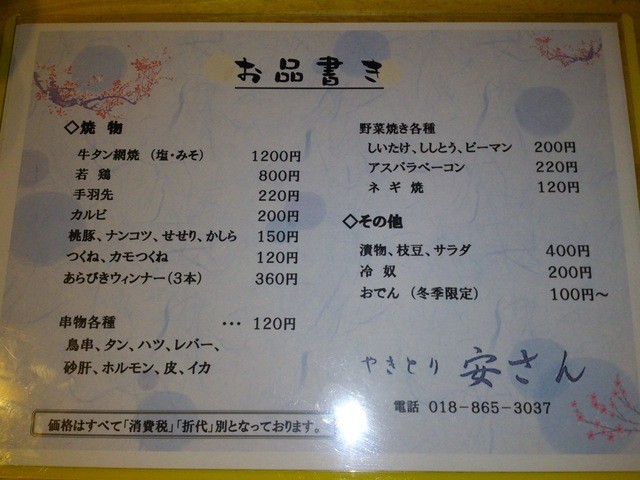 お品書き
◇焼 物
牛タン網焼 (塩・みそ) 1200円
若 鶏 800円
手羽先 220円
カルビ 200円
桃豚、ナンコツ、せせり、かしら 150円
つくね、カモつくね 120円
あらびきウィンナー(3本) 360円
串物各種 … 120円
鳥串、タン、ハツ、レバー、
砂肝、ホルモン、皮、イカ
価格はすべて「消費税」「折代」別となっております。
野菜焼き各種
しいたけ、ししとう、ピーマン 200円
アスパラベーコン 220円
ネギ焼 120円
◇その他
漬物、枝豆、サラダ 400円
冷 奴 200円
おでん (冬季限定) 100円～
やきとり 安さん
電話 018-865-3037